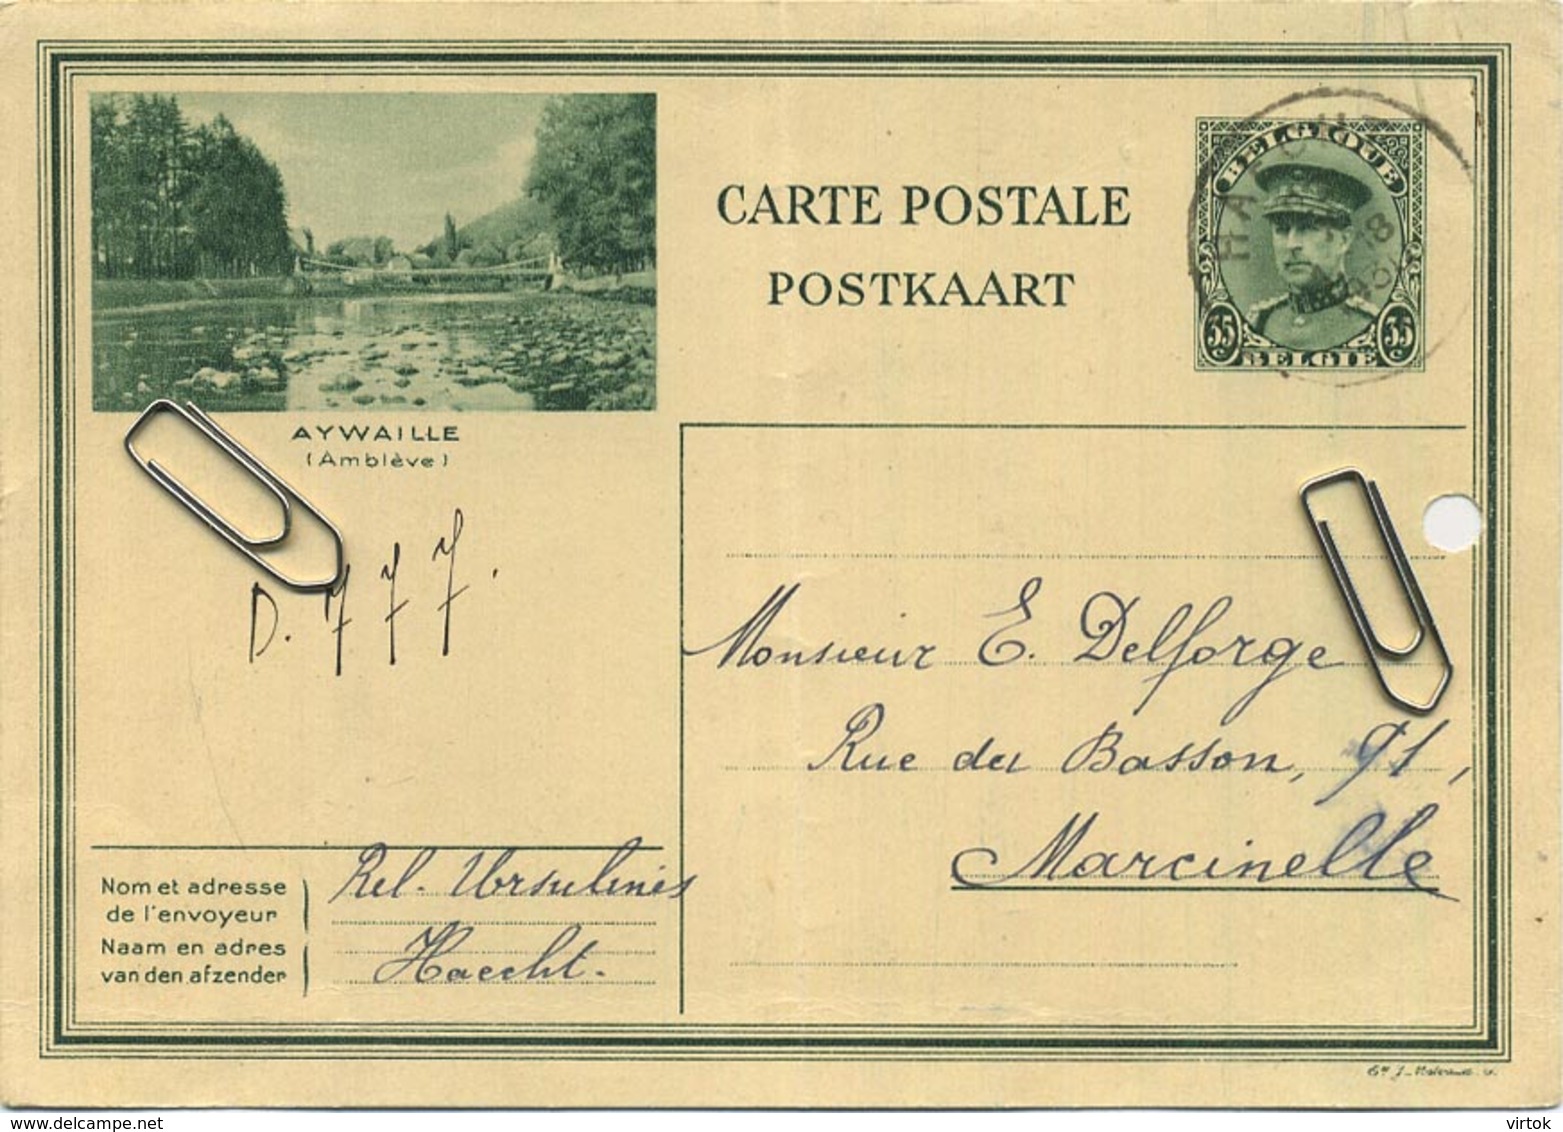 CARTE POSTALE
POSTKAART
BELGIQUE
35 c 35 c
BELGIË
HAECHT
18
AYWAILLE
(Amblève)
D. 777.
Monsieur E. Delforge
Rue du Basson, 91,
Marcinelle
Nom et adresse
de l'envoyeur
Naam en adres
van den afzender
Rel. Ursulines
Haecht.
delcampe.net
virtok